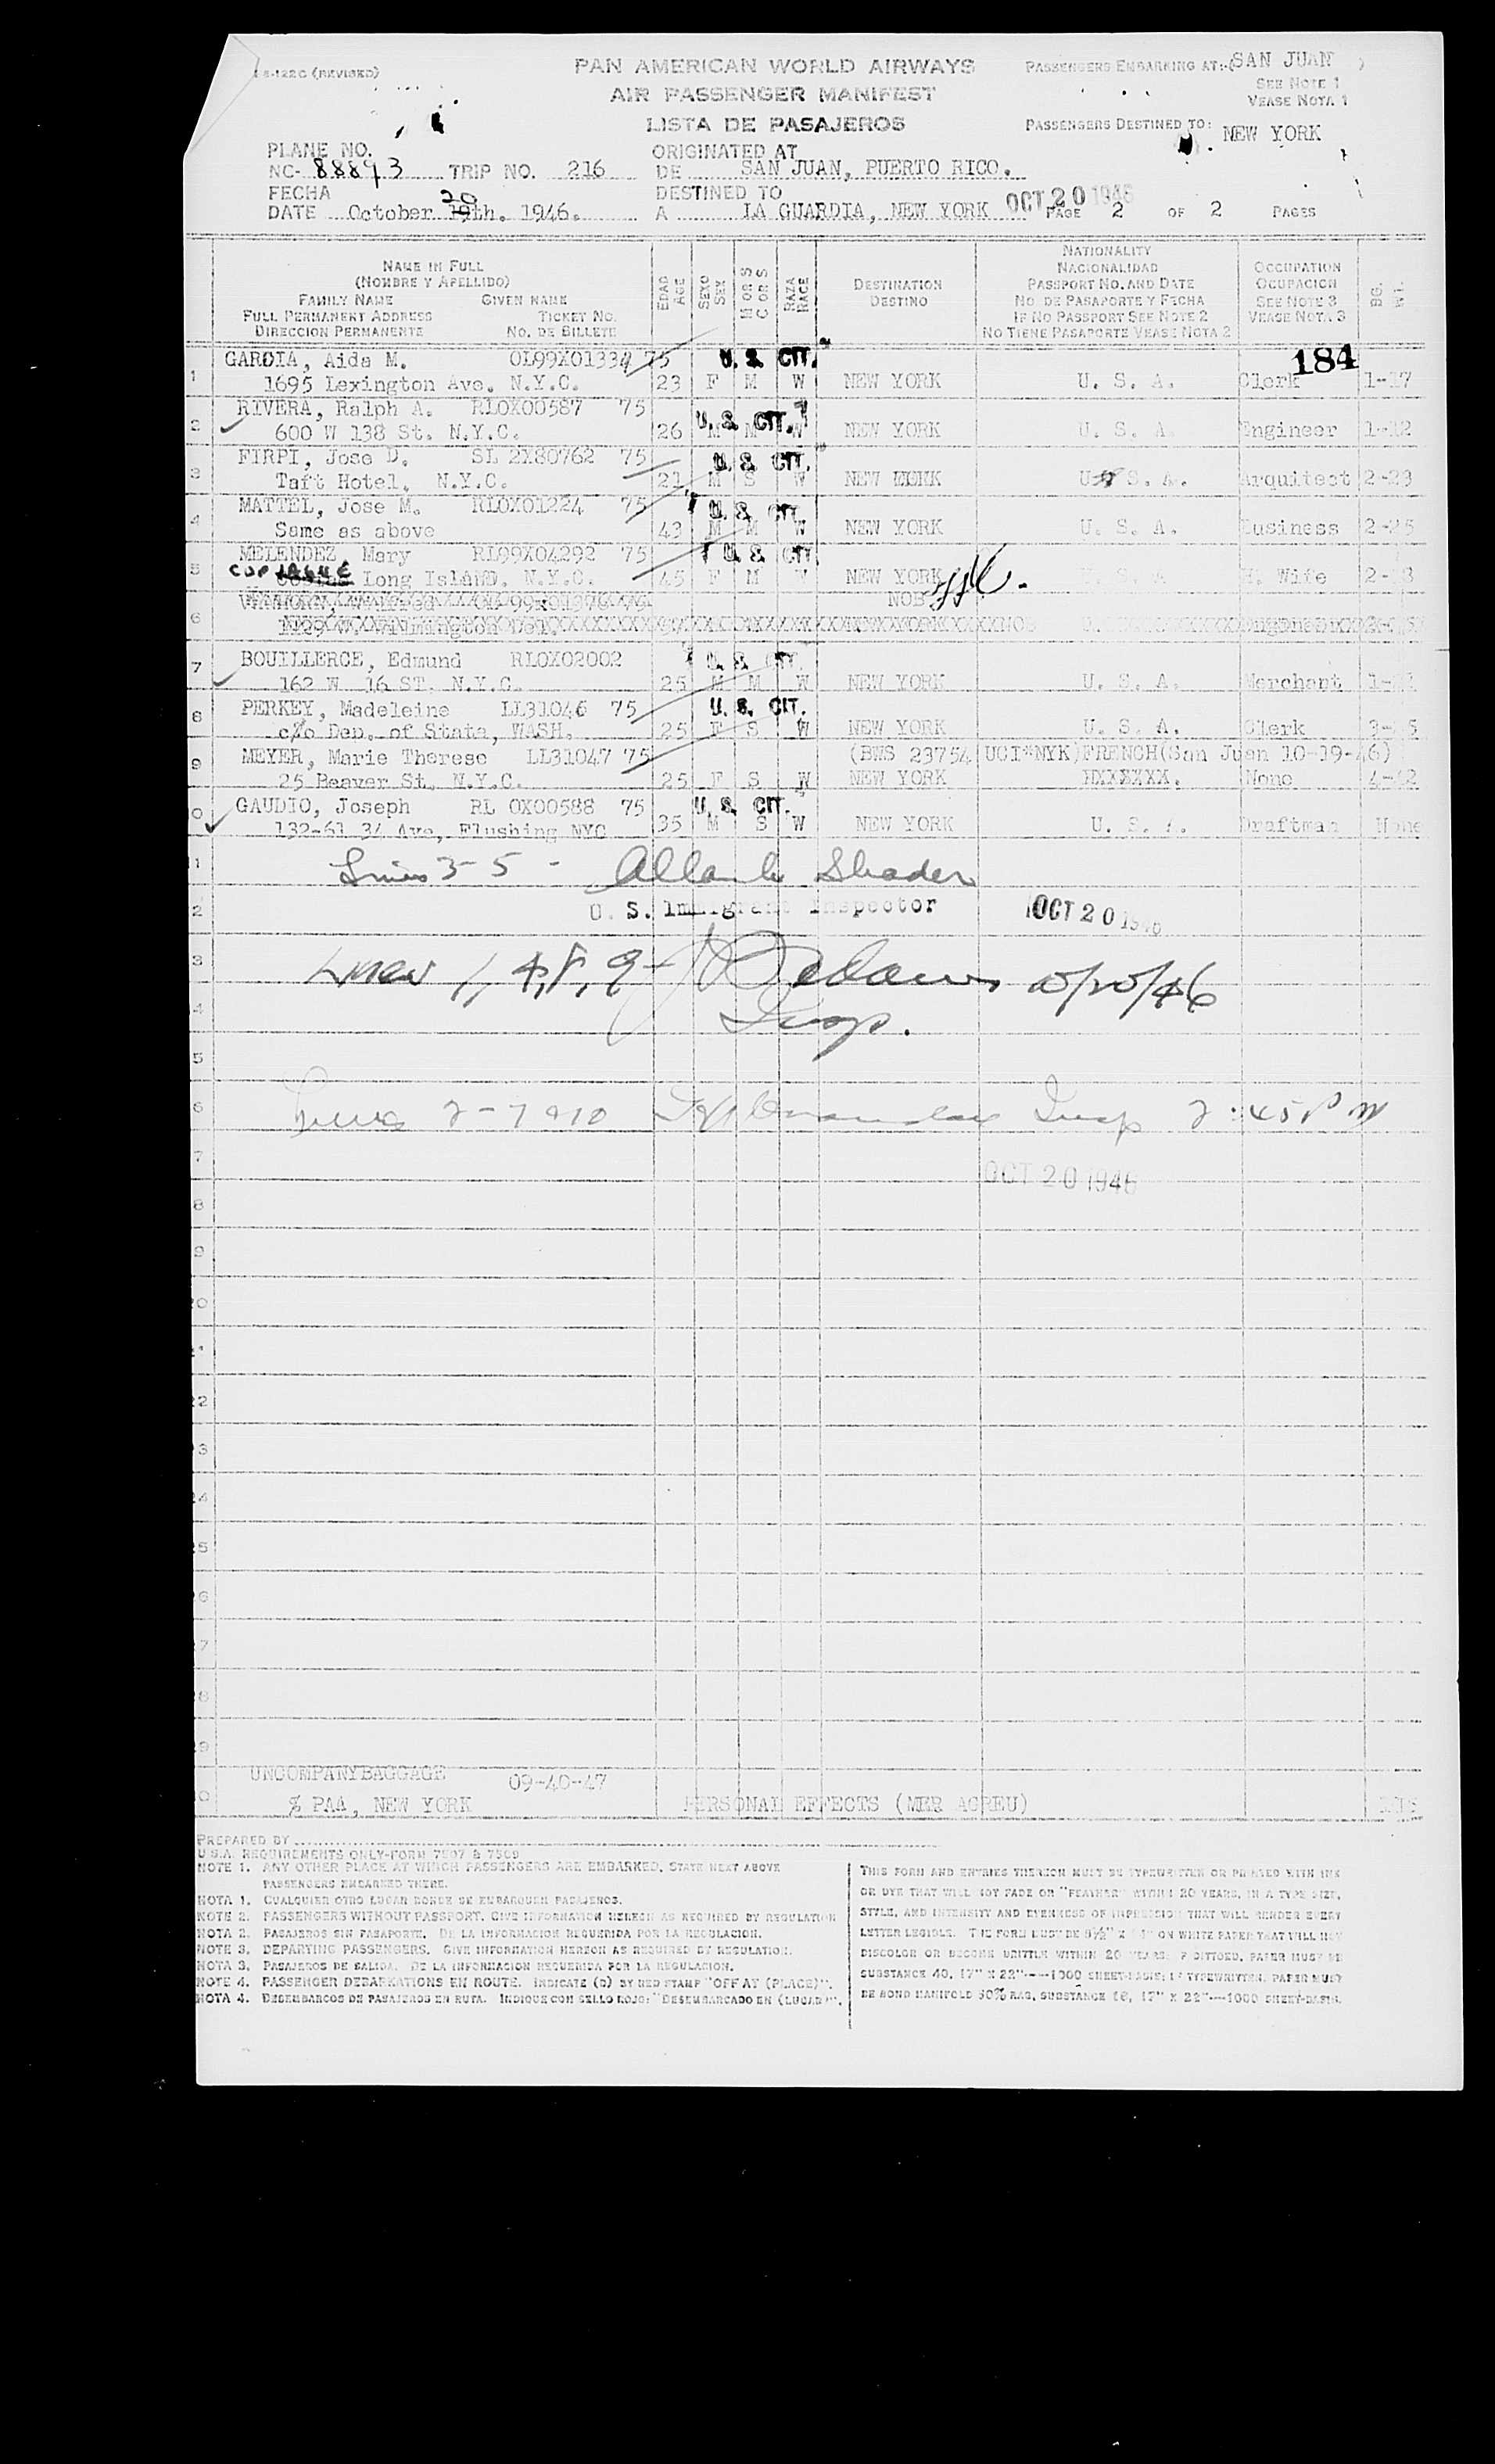 (REVISED)
PAN AMERICAN WORLD AIRWAYS
PASSENGERS EMBARKING AT: (SAN JUAN )
AIR PASSENGER MANIFEST
SEE NOTE 1
VEASE NOTA 1
LISTA DE PASAJEROS
PASSENGERS DESTINED TO: NEW YORK
PLANE NO.
NC- 88893 TRIP NO. 216
ORIGINATED AT
DE SAN JUAN, PUERTO RICO.
FECHA
DATE October 19th. 1946.
20
DESTINED TO
A LA GUARDIA, NEW YORK
OCT 20 1946
PAGE 2 OF 2 PAGES
NAME IN FULL
(NOMBRE Y APELLIDO)
FAMILY NAME GIVEN NAME
FULL PERMANENT ADDRESS TICKET NO.
DIRECCION PERMANENTE NO. DE BILLETE
EDAD AGE
SEXO SEX
M OR S C OR S
RAZA RACE
DESTINATION
DESTINO
NATIONALITY
NACIONALIDAD
PASSPORT NO. AND DATE
NO. DE PASAPORTE Y FECHA
IF NO PASSPORT SEE NOTE 2
NO TIENE PASAPORTE VEASE NOTA 2
OCCUPATION
OCUPACION
SEE NOTE 3
VEASE NOTA 3
BG. WT.
184
GARCIA, Aida M. OL99X01334 75 U. S. CIT.
1 1695 Lexington Ave. N.Y.C. 23 F M W NEW YORK U. S. A. Clerk 1-17
RIVERA, Ralph A. RLOX00587 75 U. S. CIT.
2 600 W 138 St. N.Y.C. 26 M M W NEW YORK U. S. A. Engineer 1-12
FIRPI, Jose D. SL 2180762 75 U. S. CIT.
3 Taft Hotel. N.Y.C. 21 M S W NEW YORK U. S. A. Arquitect 2-23
MATTEL, Jose M. RLOX01224 75 U. S. CIT.
4 Same as above 43 M M W NEW YORK U. S. A. Business 2-25
MELENDEZ, Mary RL99X04292 75 U. S. CIT.
5 COPIAGUE Long Island. N.Y.C. 45 F M W NEW YORK H. Wife
NOB
6 Wilmington Del.
BOUILLERCE, Edmund RLOX02002 U. S. CIT.
7 162 W 16 ST. N.Y.C. 25 M M W NEW YORK U. S. A. Merchant
PERKEY, Madeleine LL31046 75 U. S. CIT.
8 c/o Dep. of State, WASH. 25 F S W NEW YORK U. S. A. Clerk
MEYER, Marie Therese LL31047 75 (BWS 23754 UCI*NYK) FRENCH (San Juan 10-19-46)
9 25 Beaver St. N.Y.C. 25 F S W NEW YORK None 4-12
GAUDIO, Joseph RL OX00588 75 U. S. CIT.
0 132-61 34 Ave, Flushing NYC 35 M S W NEW YORK U. S. A. Draftman None
Lines 3-5 - Shader
U. S. Immigrant Inspector OCT 20 1946
Lines 1, 4, 8, 9 - 10/20/46
Insp.
Lines 2-7 & 10 Insp 2:45 PM
OCT 20 1946
UNCOMPANYBAGGAGE 09-40-47
% PAA, NEW YORK PERSONAL EFFECTS (MER ACREU)
PREPARED BY
U.S.A. REQUIREMENTS ONLY-FORM 7507 & 7509
NOTE 1. ANY OTHER PLACE AT WHICH PASSENGERS ARE EMBARKED, STATE NEXT ABOVE
PASSENGERS EMBARKED THERE.
NOTA 1. CUALQUIER OTRO LUGAR DONDE SE EMBARQUEN PASAJEROS.
NOTE 2. PASSENGERS WITHOUT PASSPORT. GIVE INFORMATION HEREON AS REQUIRED BY REGULATION
NOTA 2. PASAJEROS SIN PASAPORTE. DE LA INFORMACION REQUERIDA POR LA REGULACION.
NOTE 3. DEPARTING PASSENGERS. GIVE INFORMATION HEREON AS REQUIRED BY REGULATION.
NOTA 3. PASAJEROS DE SALIDA. DE LA INFORMACION REQUERIDA POR LA REGULACION.
NOTE 4. PASSENGER DEBARKATIONS EN ROUTE. INDICATE (D) BY RED STAMP "OFF AT (PLACE)".
NOTA 4. DESEMBARCOS DE PASAJEROS EN RUTA. INDIQUE CON SELLO ROJO: "DESEMBARCADO EN (LUGAR)".
THIS FORM AND ENTRIES THEREON MUST BE TYPEWRITTEN OR PRINTED WITH INK
OR DYE THAT WILL NOT FADE OR "FEATHER" WITHIN 20 YEARS, IN A TYPE SIZE,
STYLE, AND INTENSITY AND EVENNESS OF IMPRESSION THAT WILL RENDER EVERY
LETTER LEGIBLE. THE FORM MUST BE 8½" X ON WHITE PAPER THAT WILL NOT
DISCOLOR OR BECOME BRITTLE WITHIN 20 YEARS. IF DITTOED, PAPER MUST BE
SUBSTANCE 40, 17" X 22"----1000 SHEET-BASIS; IF TYPEWRITTEN, PAPER MUST
BE BOND MANIFOLD 50% RAG, SUBSTANCE 16, 17" X 22"----1000 SHEET-BASIS.